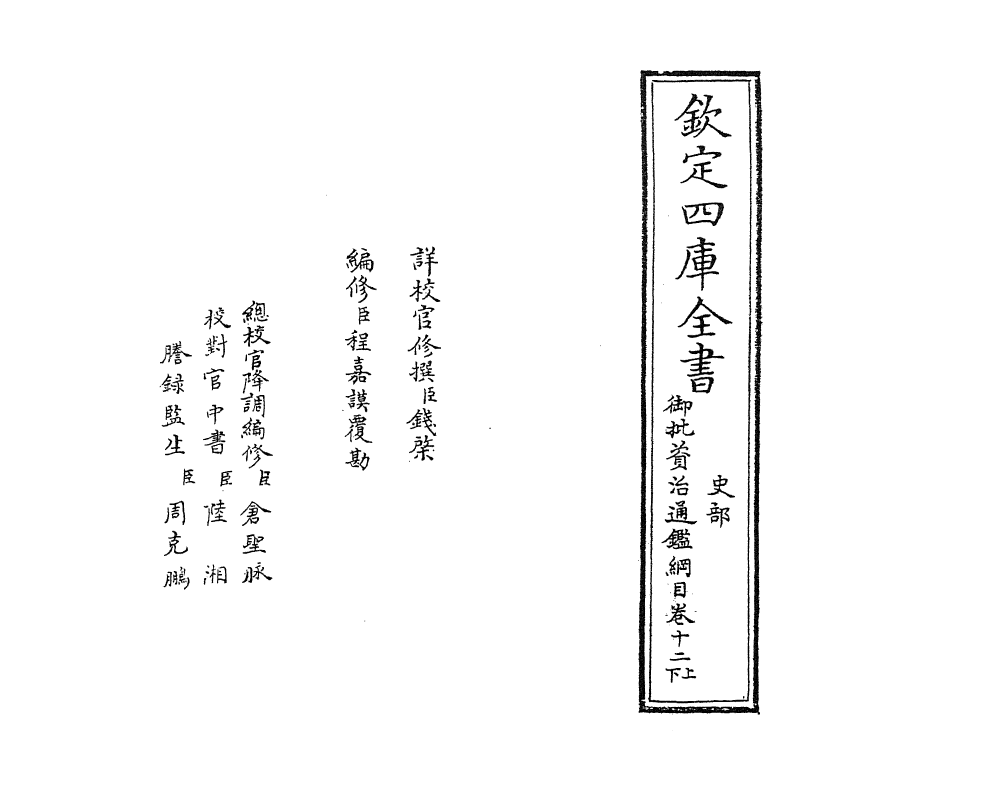 欽定四庫全書
史部
御批資治通鑑綱目卷十二上下
詳校官修撰臣錢棨
編修臣程嘉謨覆勘
總校官降調編修臣倉聖脉
校對官中書臣陸湘
謄録監生臣周克鵬